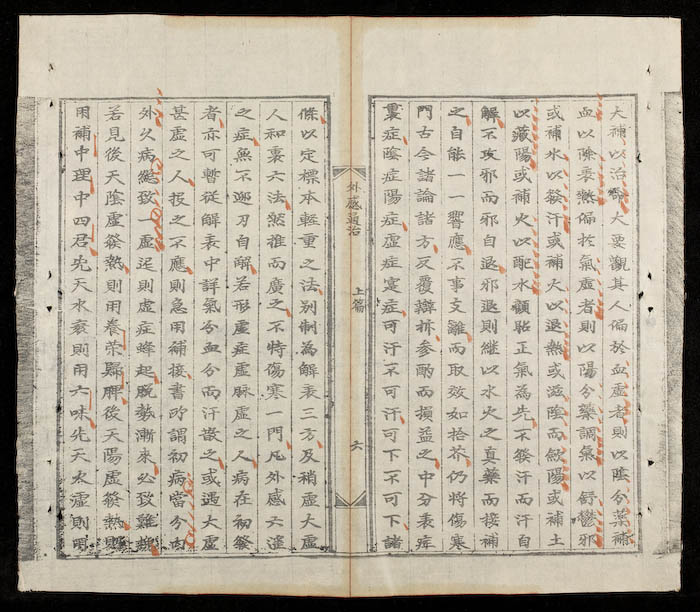 大補以治大要觀其人偏於血虛者則以陰分藥補
血以除裏熱偏於氣虛者則以陽分藥調氣以舒鬱邪
或補水以發汗或補火以退熱或滋陰而斂陽或補土
以藏陽或補火以配水顧貼正氣為先不發汗而汗自
解不攻邪而邪自退邪退則継以水火之真藥而接補
之自能一一響應不事支離而取效如拾芥仍將傷寒
門古今諸論諸方反覆辯析參酌而損益之中分表症
裏症陰症陽症虛症寔症可汗不可汗可下不可下諸
外感通治 上篇 六
條以定標本輕重之法別制為解表三方及稍虛大虛
人和裏六法然推而廣之不特傷寒一門凡外感六滛
之症無不迎刃自解若形虛症虛脉虛之人病在初發
者亦可暫従解表中詳氣分血分而汗散之或遇大虛
甚虛之人投之不應則急用補接書所謂初病當分内
外久病縂致一虛足則虛症蜂起脫勢漸來必致難
若見後天陰虛發熱則用養荣歸脾後天陽虛發熱則
用補中理中四君先天水衰則用六味先天太虛則用